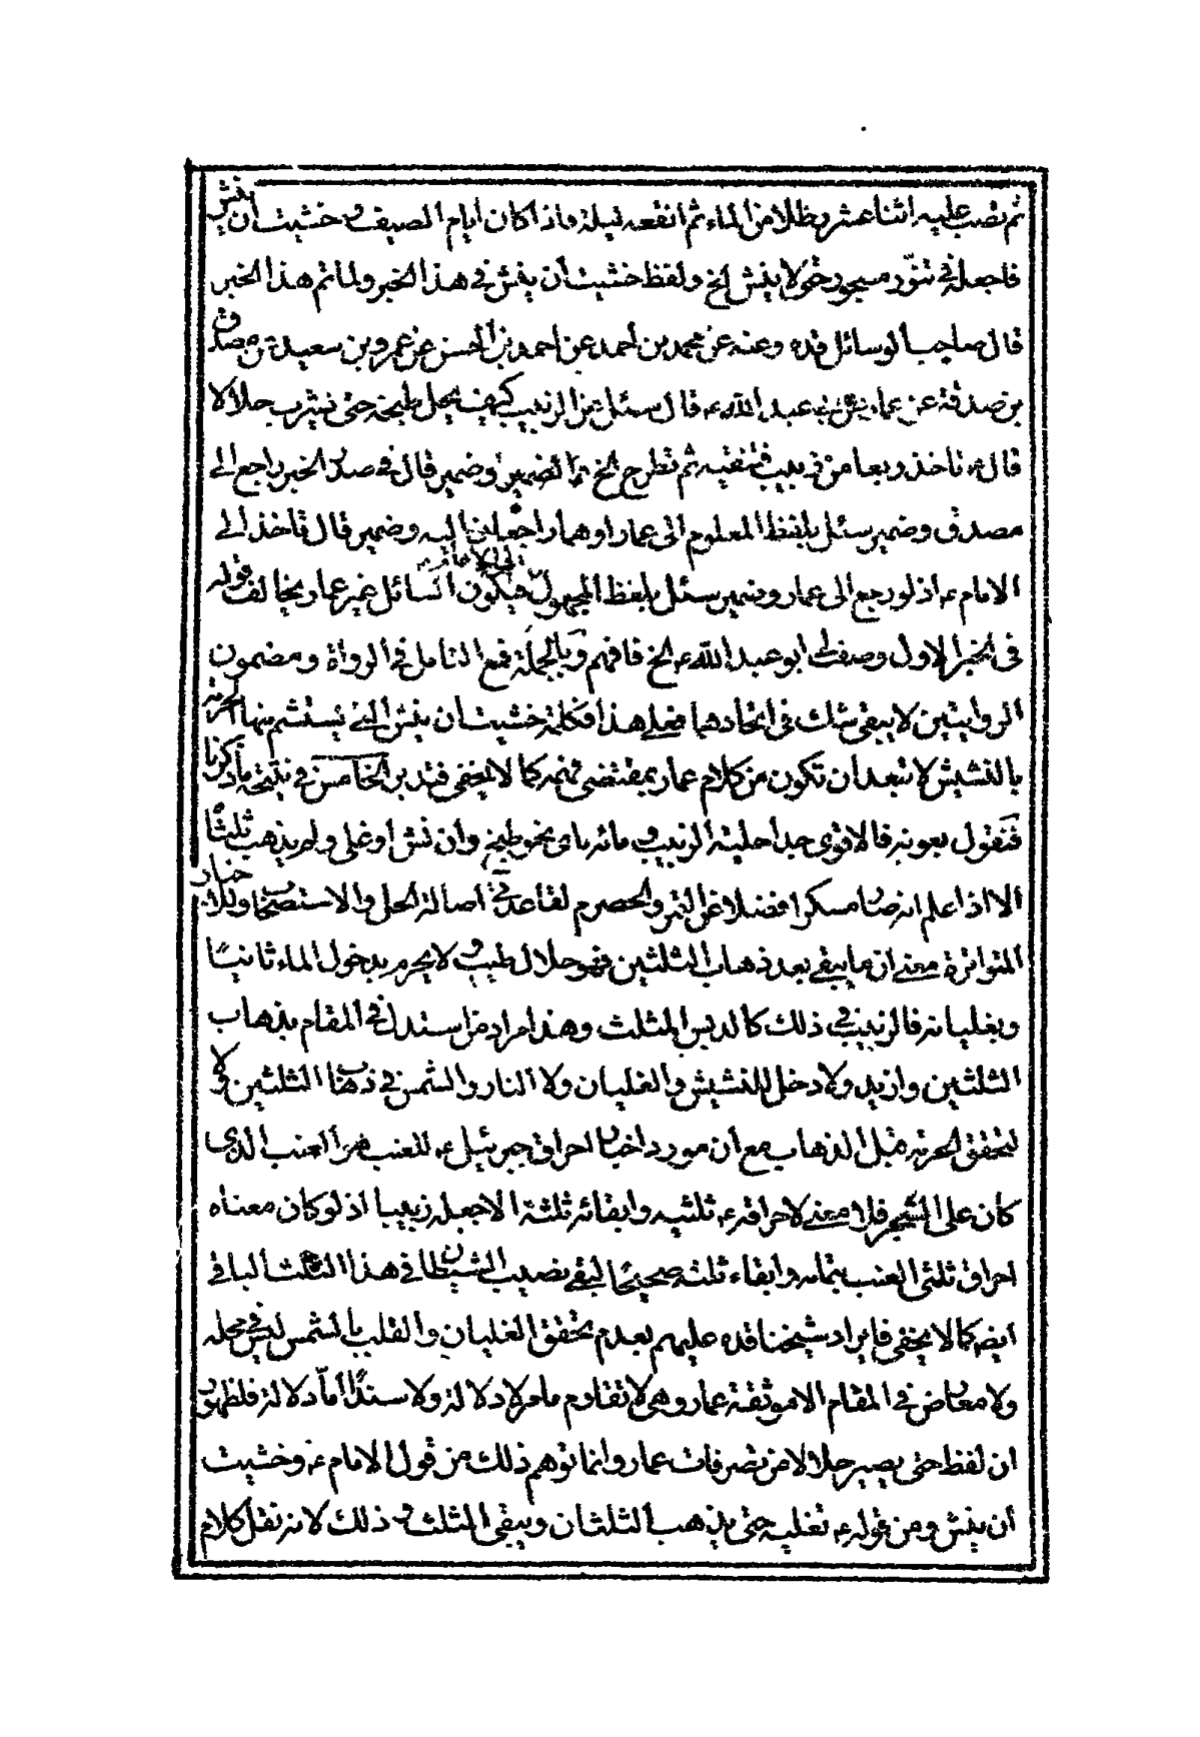 ثم تصب عليه اثنا عشر رطلا من الماء ثم انقعه ليلة فاذا كان ايام الصيف و خشيت أن ينش
فاجعله في تنّور مسجور حتى لا ينش الخ ولفظ خشيت أن ينش في هذا الخبر ولما تم هذا الخبر
قال صاحب الوسائل قده وعنه عن محمد بن أحمد عن احمد بن الحسن عن عمرو بن سعيد عن مصدق
بن صدقة عن عمار عن ابي عبد الله ع قال سئل عن الزبيب كيف يحل طبخه حتى يشرب حلالا
قال ع تأخذ ربعا من زبيب فتنقيه ثم تطرح الخ الضمير وضمير قال في صدر الخبر راجع الى
مصدق وضمير سئل بلفظ المعلوم الى عمار او هما راجعان اليه وضمير قال تأخذ الى
الامام ع اذ لو رجع الى عمار وضمير سئل بلفظ المجهول فيكون السائل غير عمار يخالف قوله
في الخبر الاول وصف لي ابو عبد الله ع الخ فافهم وبالجملة فمع التامل في الرواة ومضمون
الروايتين لا يبقى شك في اتحادهما فعلى هذا فكلمة خشيت ان ينش التي يستشم منها الحرمة
بالنشيش لا تبعد ان تكون من كلام عمار بمقتضى فهمه كما لا يخفى فتدبر الخامس في نتيجة ما ذكرنا
فنقول بعونه فالاقوى جدا حلية الزبيب و مائه باي نحو طبخ وان نش او غلى ولم يذهب ثلثا
الا اذا علم انه صار مسكرا فضلا عن التمر والحصرم لقاعدتي اصالة الحل والاستصحاب وللاخبار
المتواترة معنى ان ما يبقى بعد ذهاب الثلثين فهو حلال طيب و لا يحرم بدخول الماء ثانيًا
وبغليانه فالزبيب في ذلك كالدبس المثلث وهذا مراد من استدل في المقام بذهاب
الثلثين وازيد ولا دخل للنشيش والغليان ولا النار والشمس في ذهاب الثلثين ولا
لتحقق الحرمة قبل الذهاب مع أن مورد اخبار احراق جبرئيل ع للعنب هو العنب الذي
كان على الشجر فلا معنى لاحراقه ع ثلثيه وابقائه ثلثه الا جعله زبيبا اذ لو كان معناه
احراق ثلثي العنب بتمامه وابقاء ثلثه صحيحًا لبقي نصيب الشيطان في هذا الثلث الباقي
ايضا كما لا يخفى فايراد شيخنا قده عليهم بعدم تحقق الغليان والقلب بالشمس ليس في محله
ولا معارض في المقام الا موثقة عمار وهي لا تقاوم ما مر لا دلالة ولا سندًا أمّا دلالة فلظهور
ان لفظ حتى يصير حلالا من تصرفات عمار وانما توهم ذلك من قول الامام ع وخشيت
أن ينش ومن قوله ع تغليه حتى يذهب الثلثان ويبقى الثلث و ذلك لانه نقل كلام